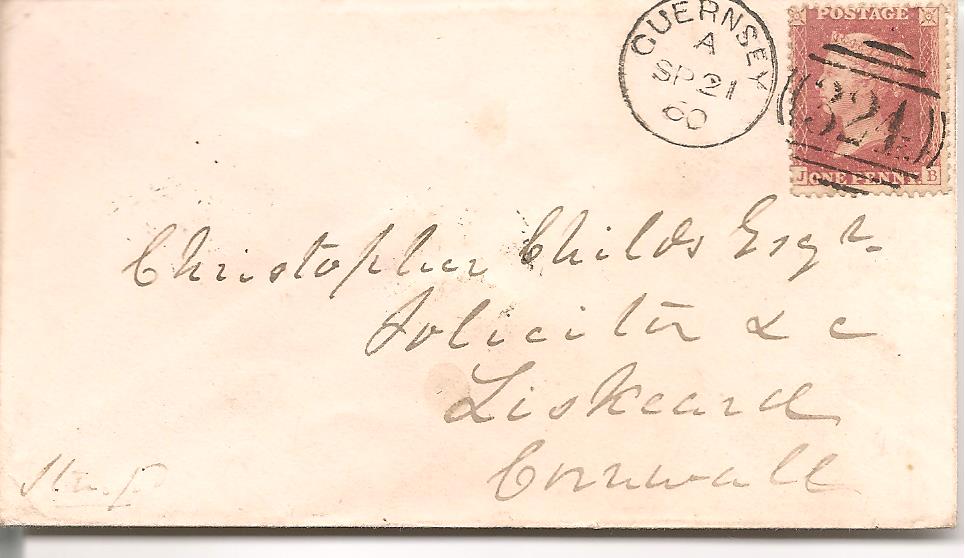 GUERNSEY
A
SP 21
60
POSTAGE
324
J ONE PENNY B
Christopher Childs Esqr.
Solicitor & c
Liskeard
Cornwall